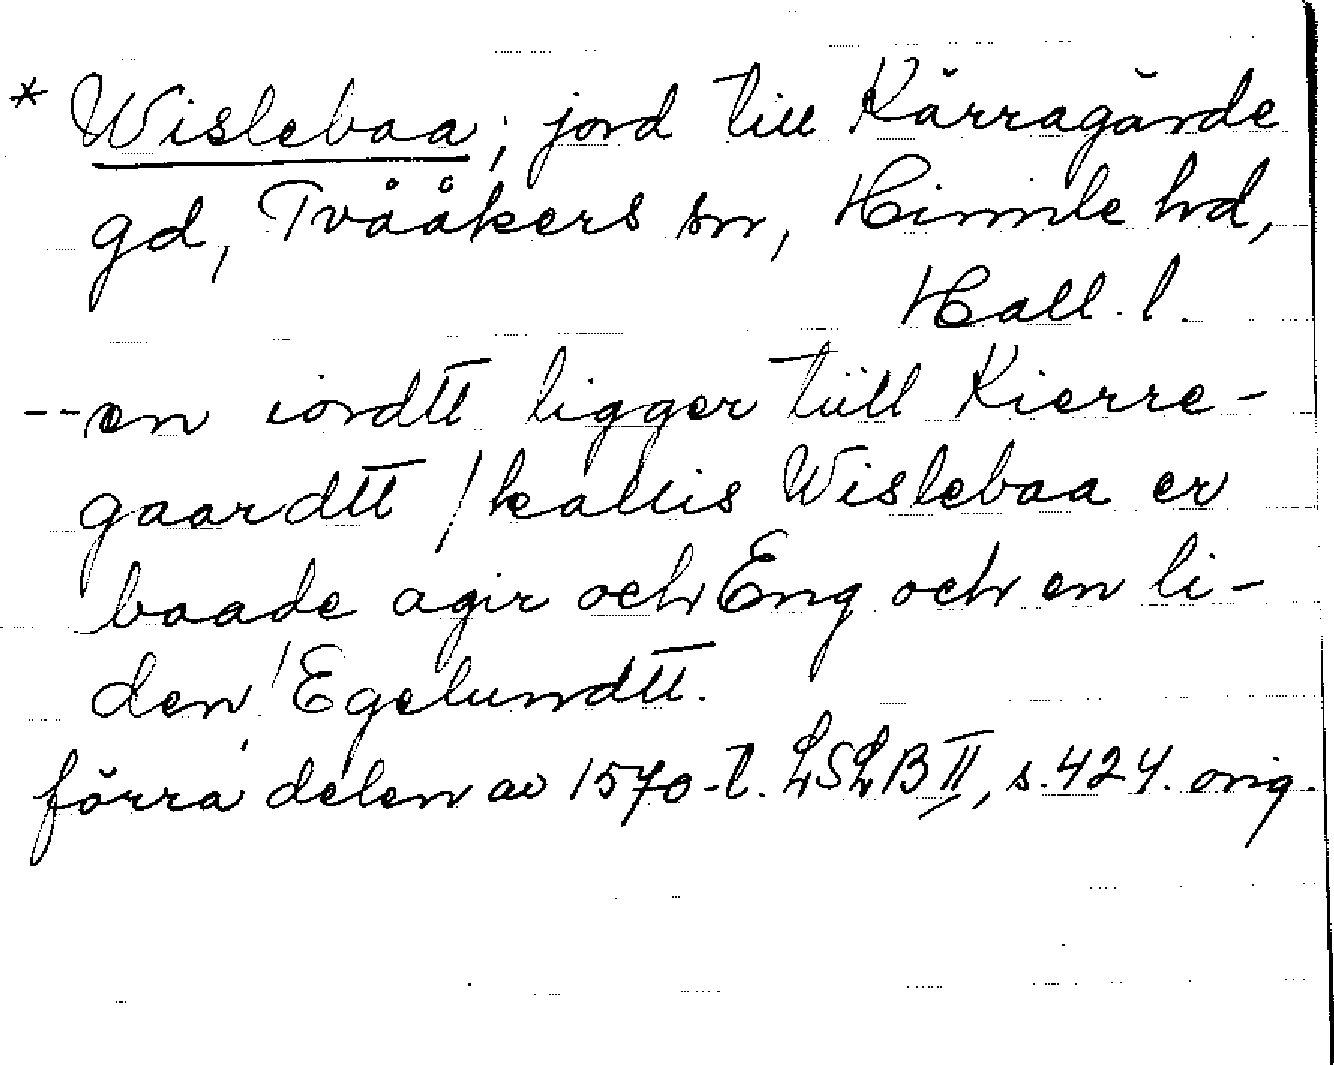 * Wislebaa; jord till Kärragärde
gd, Tvååkers sn, Himle hd,
Hall. l.
--en iordtt ligger tiill Kierre-
gaardtt / kallis Wislebaa er
baade agir och Eng och en li-
den Egelundtt.
förra delen av 1570-t. LSLB II, s. 424. orig.